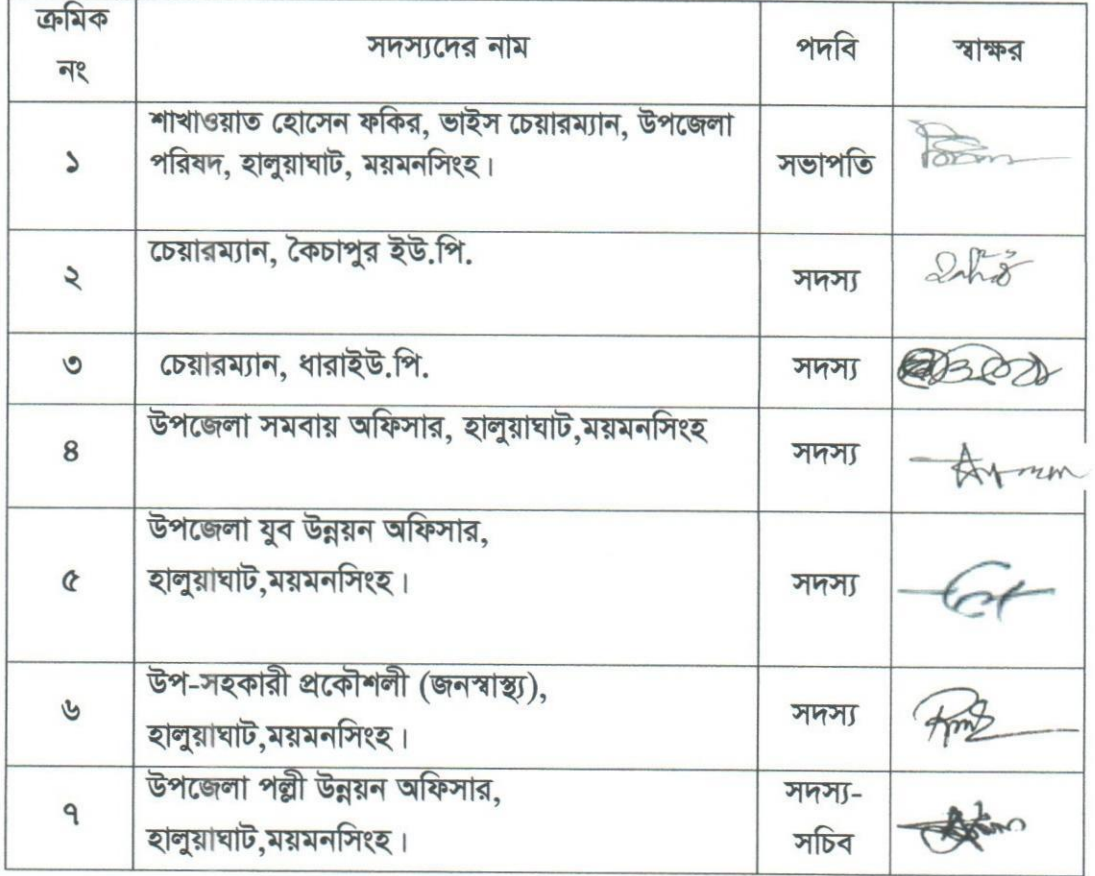 ক্রমিক নং সদস্যদের নাম পদবি স্বাক্ষর
১ শাখাওয়াত হোসেন ফকির, ভাইস চেয়ারম্যান, উপজেলা
পরিষদ, হালুয়াঘাট, ময়মনসিংহ। সভাপতি
২ চেয়ারম্যান, কৈচাপুর ইউ.পি. সদস্য
৩ চেয়ারম্যান, ধারাইউ.পি. সদস্য
৪ উপজেলা সমবায় অফিসার, হালুয়াঘাট,ময়মনসিংহ সদস্য
৫ উপজেলা যুব উন্নয়ন অফিসার,
হালুয়াঘাট,ময়মনসিংহ। সদস্য
৬ উপ-সহকারী প্রকৌশলী (জনস্বাস্থ্য),
হালুয়াঘাট,ময়মনসিংহ। সদস্য
৭ উপজেলা পল্লী উন্নয়ন অফিসার,
হালুয়াঘাট,ময়মনসিংহ। সদস্য-সচিব